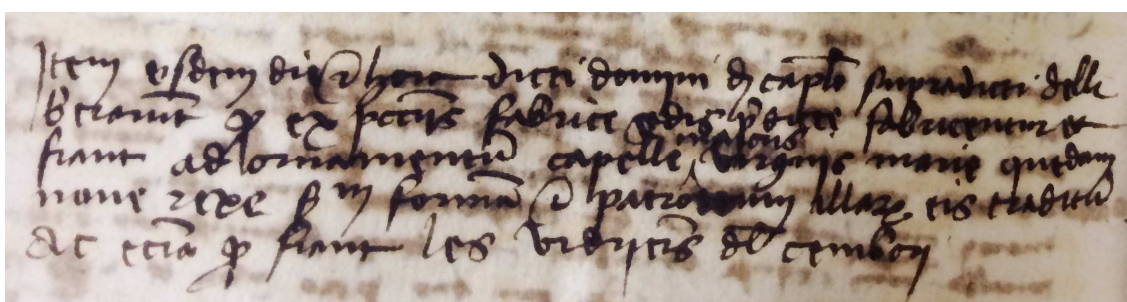 Item eisdem die et hora dicti domini de caplo supradicti deli
beraverunt q ex peccuniis fabrice sedis predicte fabricentur et
fiant ad ornamentum capelle virginis marie quedam
nove rexe s m formam et patronum illarum eis traditum
Ac etiam q fiant les vidrieres del cembori